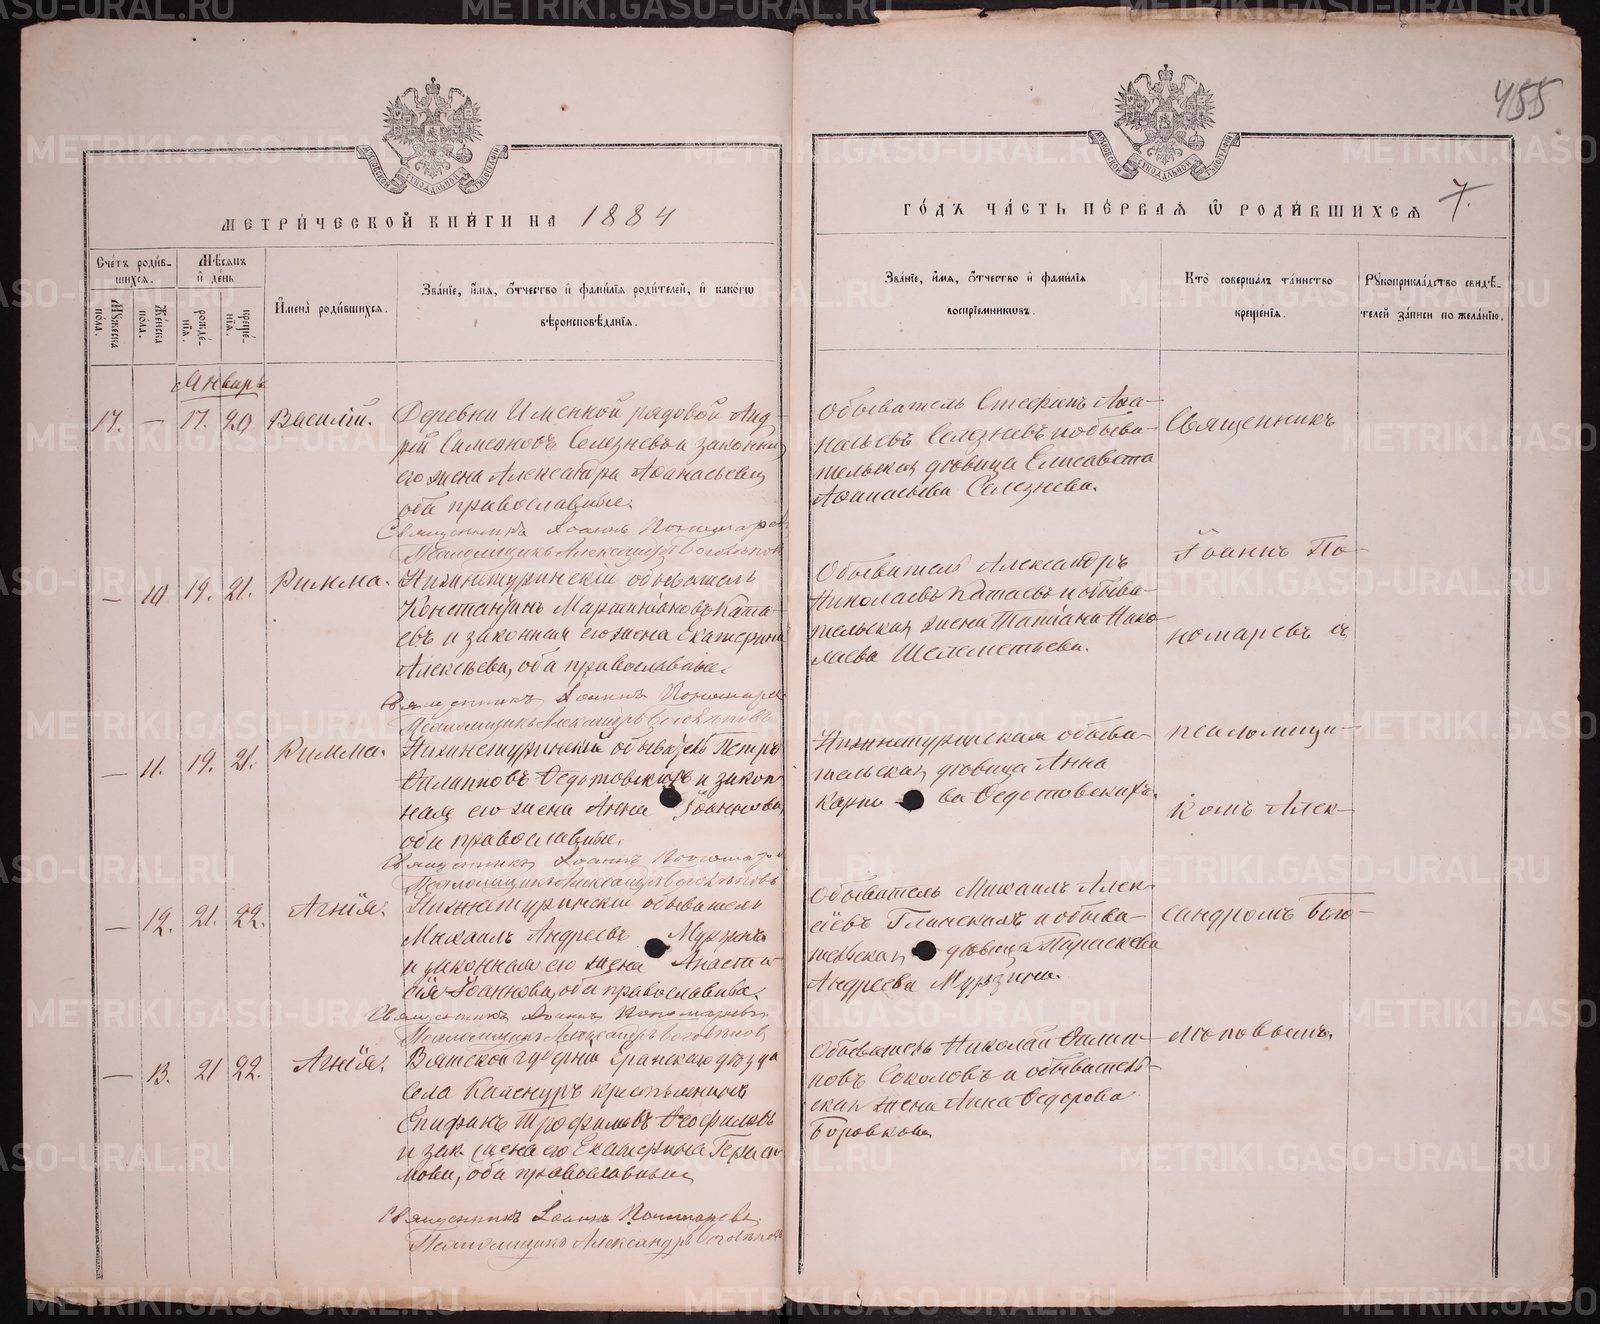 455
МЕТРИ́ЧЕСКОЙ КНИ́ГИ НА 1884
ГО́ДЪ ЧА́СТЬ ПЕ́РВАЯ Ѿ РОДИ́ВШИХСЯ 7.
Сче́тъ роди́в-
шихся.
Мꙋ́жеска по́ла.
Же́нска по́ла.
Мѣ́сяцъ и҆ де́нь
рожде́нїя.
креще́нїя.
И҆мена̀ роди́вшихся.
Зва́нїе, и҆́мя, ѻ҆́тчество и҆ фами́лїя роди́телей, и҆ како́гѡ
вѣроисповѣ́данїя.
Зва́нїе, и҆́мя, ѻ҆́тчество и҆ фами́лїя
воспрїе́мникѡвъ.
Кто̀ соверша́лъ та́инство
креще́нїя.
Рꙋкоприкла́дство свидѣ́-
телей за́писи по жела́нїю.
Январь
17. — 17. 20. Василій.
Деревни Именной рядовой Анд-
рей Симеоновъ Селезневъ и законная
его жена Александра Аѳанасьева
оба православные.
Священникъ Іоаннъ Пономаревъ
Псаломщикъ Александръ Боголѣповъ
Обыватель Стефанъ Аѳа-
насьевъ Селезневъ и обыва-
тельская дѣвица Елисавета
Аѳанасьева Селезнева.
Священникъ
— 10. 19. 21. Римма.
Нижнетуринскій обыватель
Константинъ Мартиніановъ Ката-
евъ и законная его жена Екатерина
Алексѣева, оба православные.
Священникъ Іоаннъ Пономаревъ
Псаломщикъ Александръ Боголѣповъ
Обыватель Александръ
Николаевъ Катаевъ и обыва-
тельская жена Татіана Нико-
лаева Шелеметьева.
Іоаннъ По-
номаревъ съ
— 11. 19. 21. Римма.
Нижнетуринскій обыватель Петръ
Филипповъ Ѳедотовскихъ и закон-
ная его жена Анна Іоаннова,
оба православные.
Священникъ Іоаннъ Пономаревъ
Псаломщикъ Александръ Боголѣповъ
Нижнетуринская обыва-
тельская дѣвица Анна
Карпова Ѳедотовскихъ.
псаломщи-
комъ Алек-
— 12. 21. 22. Агнія.
Нижнетуринскій обыватель
Михаилъ Андреевъ Мурзинъ
и законная его жена Анаста-
сія Іоаннова, оба православные.
Священникъ Іоаннъ Пономаревъ
Псаломщикъ Александръ Боголѣповъ
Обыватель Михаилъ Алек-
сѣевъ Глинскихъ и обыва-
тельская дѣвица Параскева
Андреева Мурзина.
сандромъ Бого-
— 13. 21 22. Агнія.
Вятской губерніи Яранскаго уѣзда
села крестьянинъ
Епифанъ Трофимовъ Ѳеофиловъ
и зак. жена его Екатерина Гераси-
мова, оба православные
Священникъ Іоаннъ Пономаревъ
Псаломщикъ Александръ Боголѣповъ
Обыватель Николай Филип-
повъ Соколовъ и обыватель-
ская жена Анна Ѳедорова
Боровкова
лѣповымъ.
METRIKI.GASO-URAL.RU